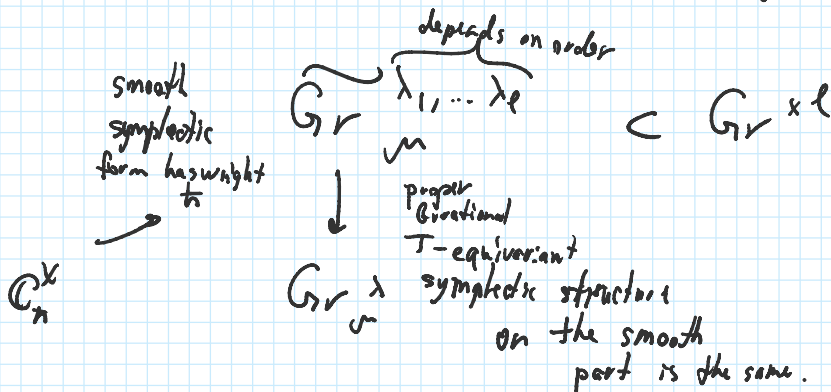 depends on order
smooth
symplectic
form has weight
ħ
G̃r^{λ_1, ... λ_l}_μ ⊂ Gr^{× l}
proper
birational
T-equivariant
ℂ^×_ħ
Gr^λ_μ
symplectic structure
on the smooth
part is the same.